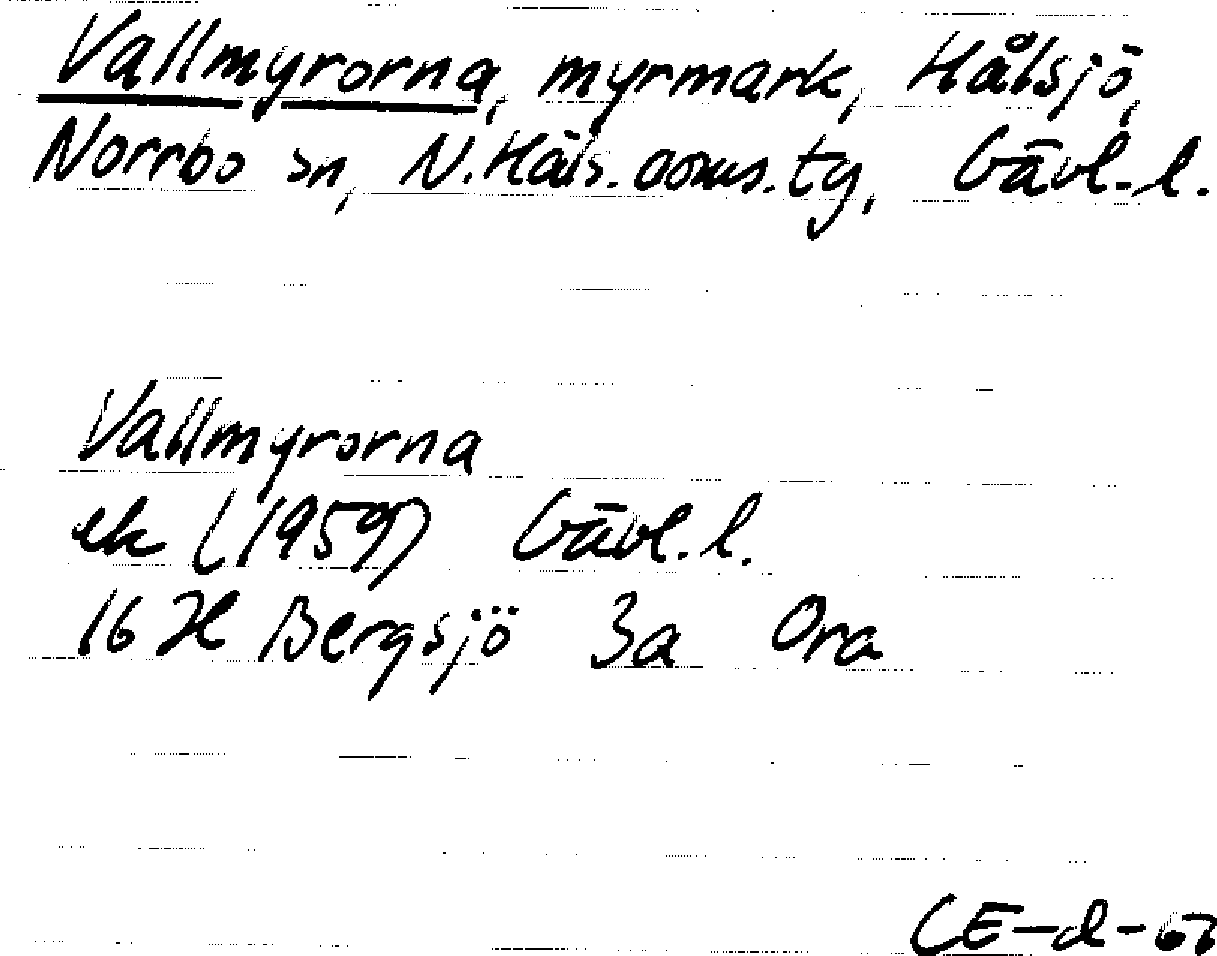 Vallmyrorna, myrmark, Hålsjö,
Norrbo sn, N. Häls. doms.tg, Gävl. l.
Vallmyrorna
ek (1959) Gävl. l.
16 H Bergsjö 3a Ora
CE-d-67